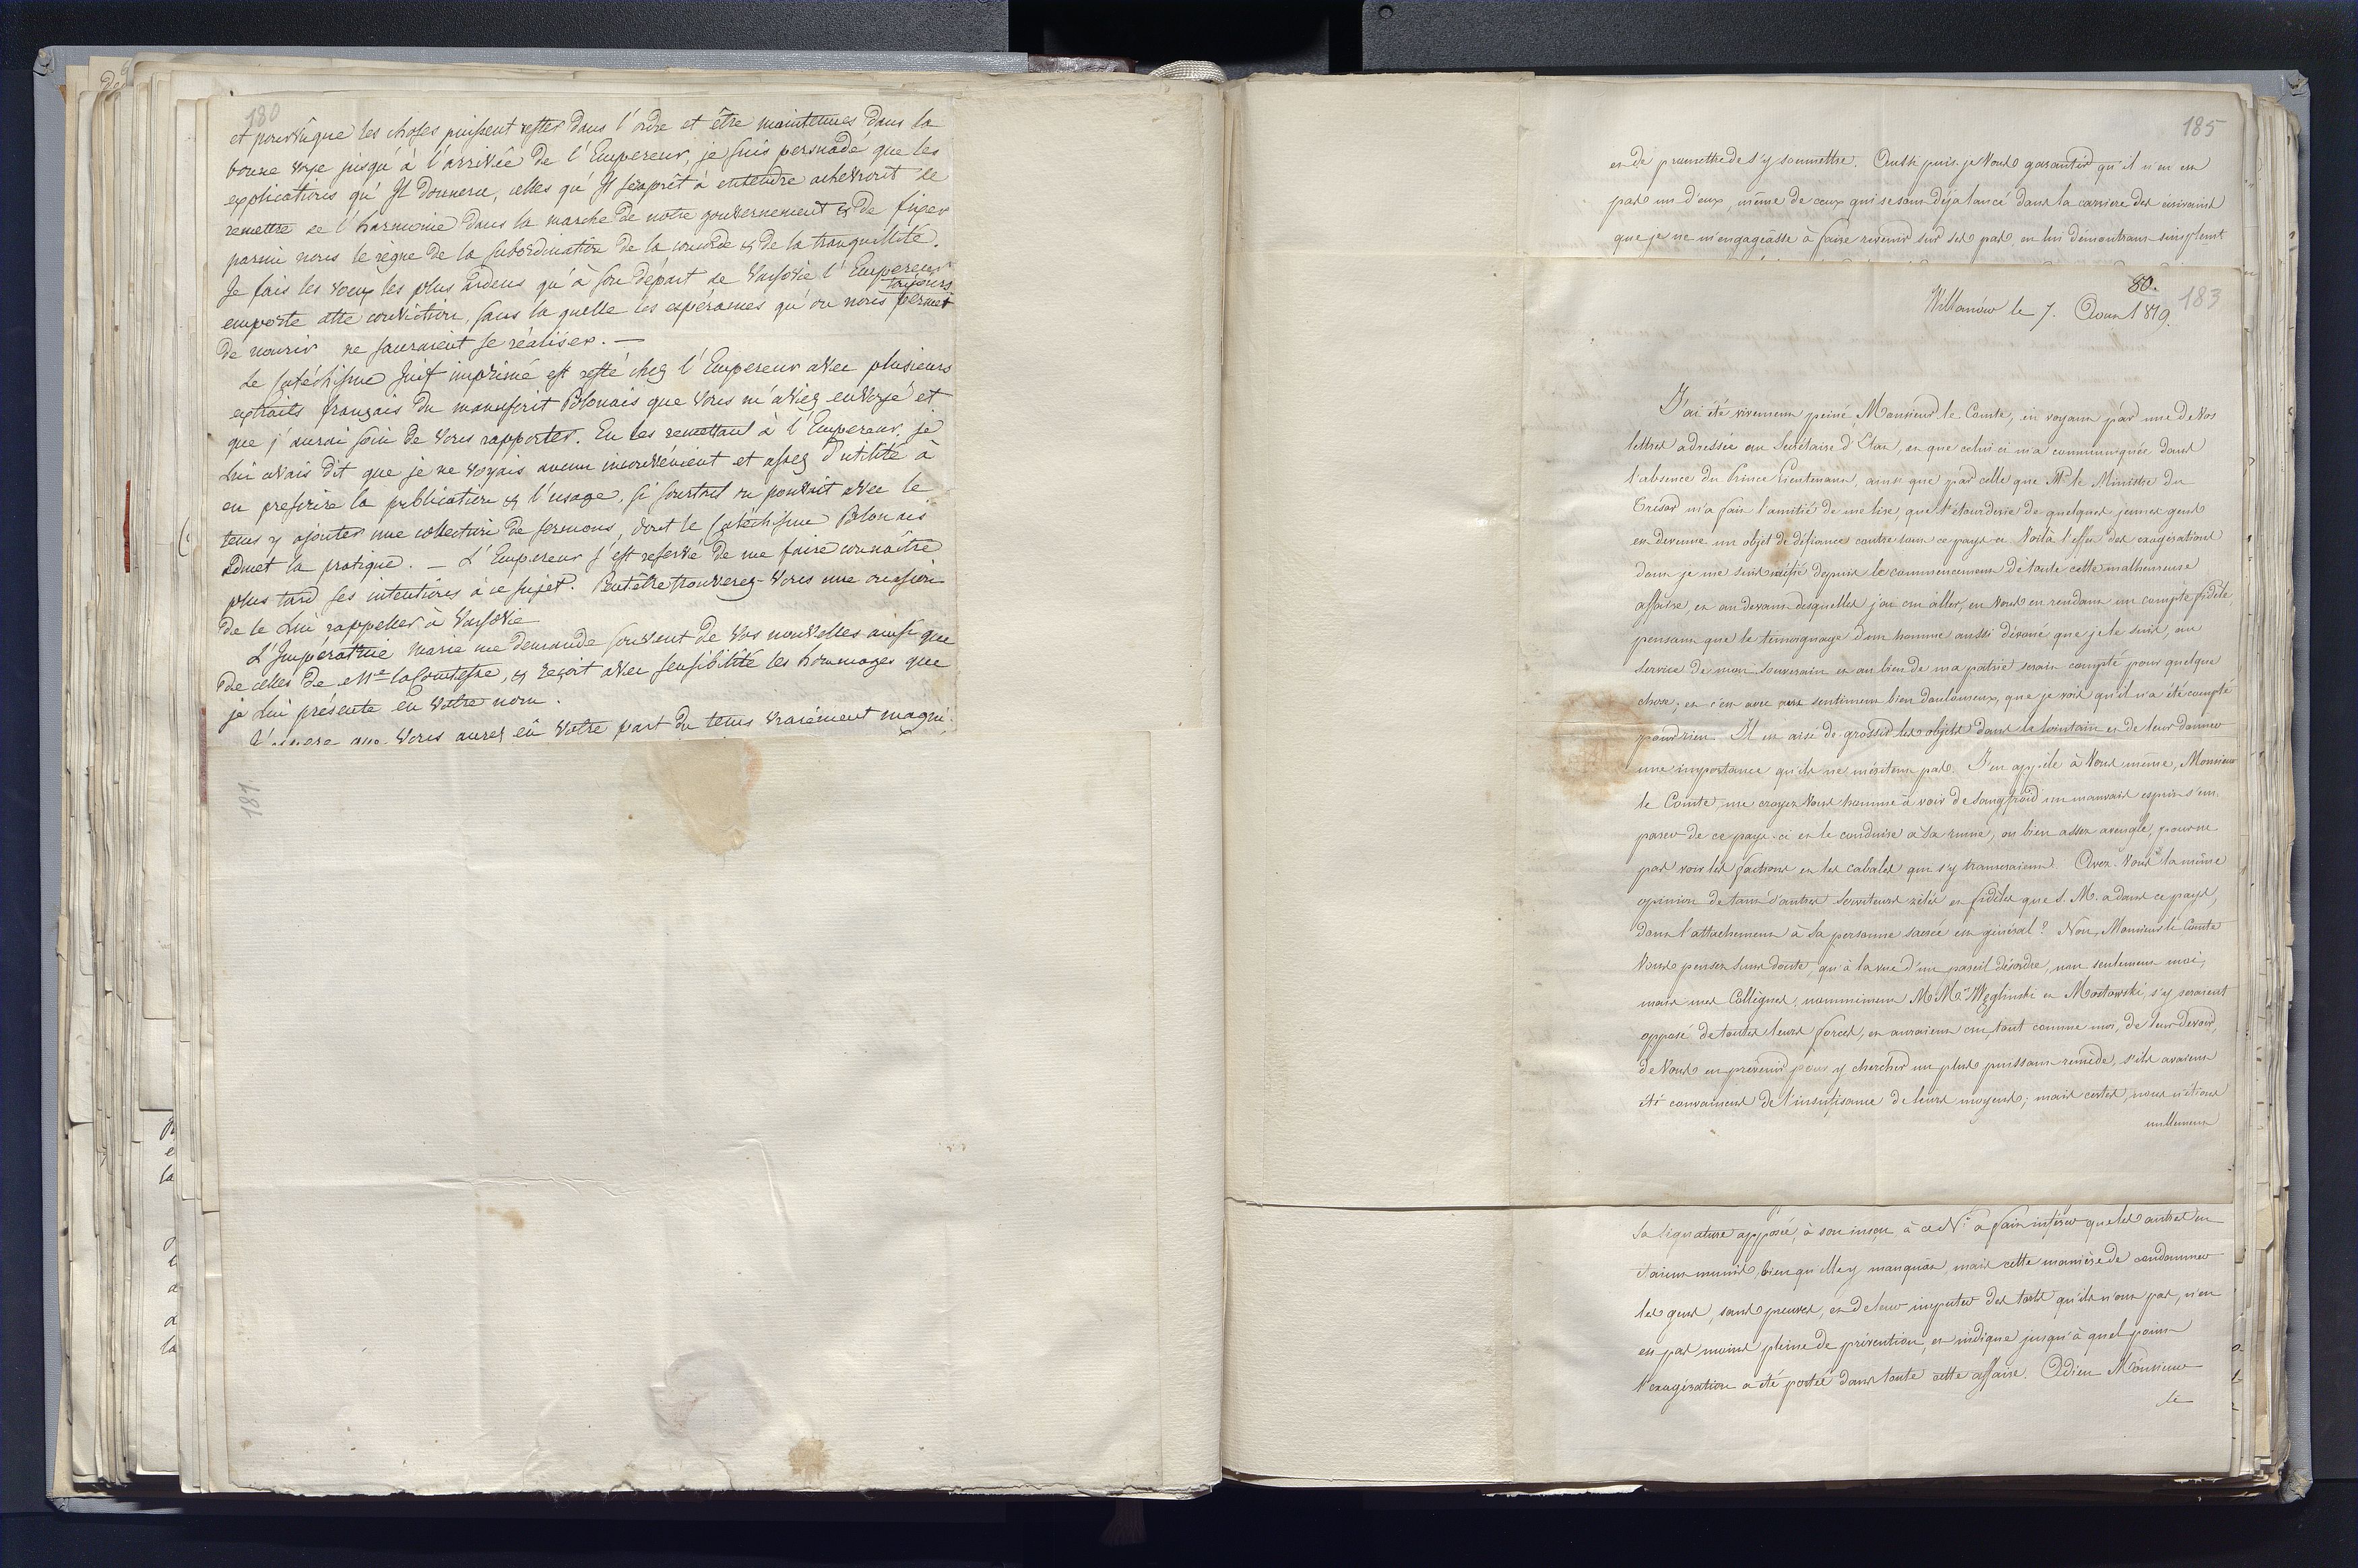 180
et pourvûque les choses puissent rester dans l'ordre et être maintenues dans la
bonne voye jusqu'à l'arrivée de l'Empereur, je suis persuadé que les
explications qu'Il donnera, celles qu'Il s'apprêt à entendre acheveront de
remettre de l'harmonie dans la marche de notre gouvernement & de fixer
parmi nous le règne de la subordination de la concorde & de la tranquillité.
Je fais les voeux les plus ardens qu'à son départ de Varsovie l'Empereur
emporte cette conviction, sans la quelle les espérances qu'on nous permet toujours
de nourir ne sauraient se réaliser. —
Le Catéchisme Juif imprimé est resté chez l'Empereur avec plusieurs
extraits français du manuscrit Polonais que Vous m'aviez envoyé et
que j'aurai soin de Vous rapporter. En les remettant à l'Empereur, je
Lui avais dit que je ne voyais aucun inconvénient et assez d'utilité à
en prescrire la publication & l'usage, si surtout on pouvait avec le
tems y ajouter une collection de sermons, dont le Catéchisme Polonais
admet la pratique. — L'Empereur s'est reservé de me faire connaître
plus tard ses intentions à ce sujet. Peutêtre trouverez-Vous une occasion
de le Lui rappeller à Varsovie
L'Impératrice Marie me demande souvent de Vos nouvelles ainsi que
de celles de Mme la Comtesse, & reçoit avec sensibilité les hommages que
je Lui présente en Votre nom.
J'espère que Vous aurez eû Votre part du tems vraiement magni-
181
185
et de promettre de s'y soumettre. Aussi puis-je Vous garantir qu'il n'en est
pas un d'eux, même de ceux qui se sont déja lancé dans la carriere des écrivains
que je ne m'engageasse à faire revenir sur ses pas, en lui démontrant simplement
80.
183
Willanów le 7. Aout 1819.
J'ai été vivement peiné, Monsieur le Comte, en voyant par une de Vos
lettres adressée au Secrétaire d'Etat, et que celui ci m'a communiquée dans
l'absence du Prince Lieutenant, ainsi que par celle que Mr le Ministre du
Trésor m'a fait l'amitié de me lire, que l'étourderie de quelques jeunes gens
est devenue un objet de défiance contre tout ce pays ci. Voilà l'effet des exagérations
dont je me suis méfié depuis le commencement de toute cette malheureuse
affaire, et au devant desquelles j'ai cru aller, en Vous en rendant un compte fidèle
pensant que le témoignage d'un homme aussi dévoué que je le suis, au
service de mon Souverain et au bien de ma patrie serait compté pour quelque
chose; et c'est avec un sentiment bien douloureux, que je vois qu'il n'a été compté
pour rien. Il est aisé de grossir les objets dans le lointain et de leur donner
une importance qu'ils ne méritent pas. J'en appelle à Vous même, Monsieur
le Comte, me croyez Vous homme à voir de sangfroid un mauvais esprit s'em-
parer de ce pays-ci et le conduire à sa ruine, ou bien assez aveugle, pour ne
pas voir les factions et les cabales qui s'y trameraient. Avez-Vous la même
opinion de tant d'autres serviteurs zélés et fidèles que S. M. a dans ce pays,
dont l'attachement à Sa personne sacrée est général? Non, Monsieur le Comte
Vous pensez sans doute, qu'à la vue d'un pareil désordre, non seulement moi,
mais mes Collègues, nommément M Mrs Węglinski et Mostowski, s'y seraient
opposé de toutes leurs forces, et auraient cru, tout comme moi, de leur devoir,
de Vous en prévenir pour y chercher un plus puissant remède, s'ils avaient
été convaincus de l'insufisance de leurs moyens; mais certes, nous n'étions
nullement
Sa signature apposée, à son insçu à ce No a fait inférer que les autres en
etaient munis, bien qu'elle y manquât, mais cette manière de condamner
les gens, sans preuves, et de leur imputer des torts qu'ils n'ont pas, n'en
est pas moins pleine de prévention, et indique jusqu'à quel point
l'exagération a été portée dans toute cette affaire. Adieu Monsieur
le